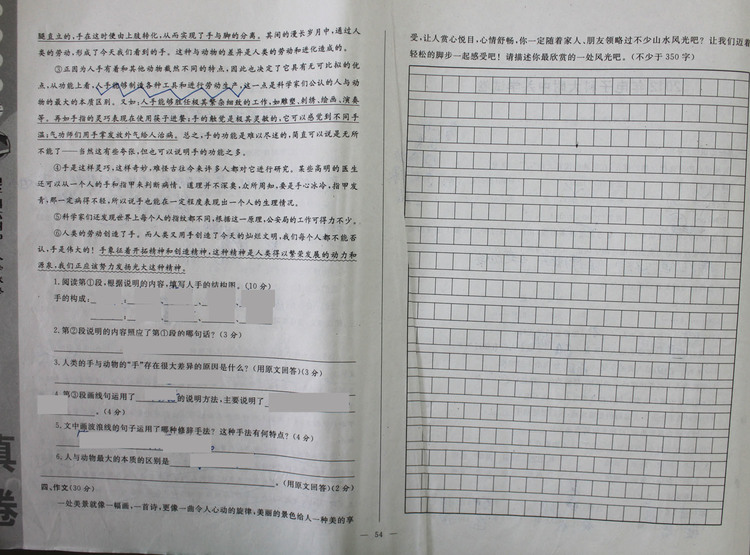 腿直立的,手在这时便由上肢转化,从而实现了手与脚的分离。其间的漫长岁月中,通过人
类的劳动,形成了今天我们看到的手。这种与动物的差异是人类的劳动和进化造成的。
③正因为人手有着和其他动物截然不同的特点,因此也决定了它具有无可比拟的优
点,从功能上看,人手能够制造各种工具和进行劳动生产,这一点是科学家们公认的人与动
物的最大的本质区别。又如:人手能够胜任极其繁杂细致的工作,如雕塑、刺绣、绘画、演奏
等。再如手指的灵巧表现在使用筷子进餐;手的触觉是极其灵敏的,它可以感觉到不同手
温;气功师们用手掌发放外气给人治病。总之,手的功能是难以尽述的,简直可以说是无所
不能了——当然这有些夸张,但也可以说明手的功能之多。
④手是这样灵巧,这样奇妙,难怪古往今来许多人都对它进行研究。某些高明的医生
还可以从一个人的手和指甲来判断病情。道理并不深奥,众所周知,要是手心冰冷,指甲发
青,那一定病得不轻,所以说手也能在一定程度表现出一个人的生理情况。
⑤科学家们还发现世界上每个人的指纹都不同,根据这一原理,公安局的工作可得力不少。
⑥人类的劳动创造了手。而人类又用手创造了今天的灿烂文明,我们每个人都不能否
认,手是伟大的!手象征着开拓精神和创造精神,这种精神是人类得以繁荣发展的动力和
源泉,我们正应该努力发扬光大这种精神。
1.阅读第①段,根据说明的内容,填写人手的结构图。(10分)
手的构成:
2.第②段说明的内容照应了第①段的哪句话?(3分)
3.人类的手与动物的“手”存在很大差异的原因是什么?(用原文回答)(3分)
4.第③段画线句运用了 的说明方法,主要说明了
。(4分)
5.文中画波浪线的句子运用了哪种修辞手法?这种手法有何特点?(4分)
6.人与动物最大的本质的区别是
。(用原文回答)(2分)
四、作文(30分)
一处美景就像一幅画,一首诗,更像一曲令人心动的旋律,美丽的景色给人一种美的享
受,让人赏心悦目,心情舒畅,你一定随着家人、朋友领略过不少山水风光吧?让我们迈着
轻松的脚步一起感受吧!请描述你最欣赏的一处风光吧。(不少于350字)
— 54 —
真卷